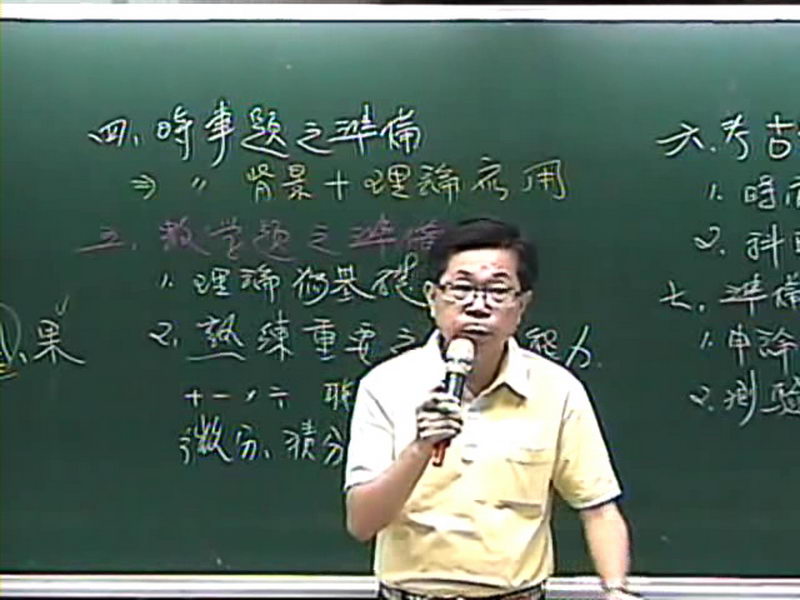 四、時事題之準備
⇒ 〃 背景+理論应用
五、数学題之準備
1. 理論為基礎
2. 熟練重要之 能力
+ - × ÷ 聯
微分、積分
果
六、考古
1. 時
2. 科
七、準備
1. 申論
2. 測驗